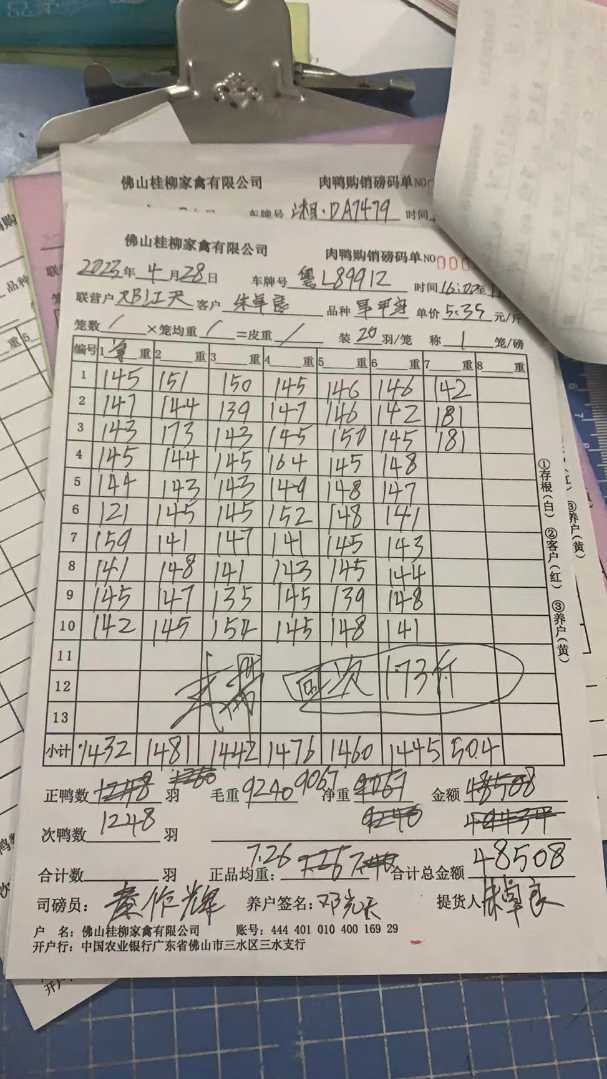 佛山桂柳家禽有限公司 肉鸭购销磅码单 NO
车牌号 湘·DA7479 时间
佛山桂柳家禽有限公司 肉鸭购销磅码单 NO 000
2023年4月28日 车牌号 粤L89912 时间 16:00
联营户 客户 品种 单价 5.35 元/斤
笼数 / ×笼均重 / =皮重 / 装 20 羽/笼 称 1 笼/磅
编号 1 重 2 重 3 重 4 重 5 重 6 重 7 重 8 重
1 145 151 150 145 146 146 142
2 147 144 139 147 146 142 181
3 143 173 143 145 150 145 181
4 145 144 145 164 145 148
5 144 143 143 149 148 147
6 121 145 145 152 148 141
7 159 141 147 141 145 143
8 141 148 141 143 145 144
9 145 147 135 145 139 148
10 142 145 154 145 148 141
11
12 173斤
13
小计 1432 1481 1442 1476 1460 1445 504
正鸭数 羽 毛重 9240 9067 净重 金额 48508
次鸭数 1248 羽
合计数 羽 正品均重: 7.26 合计总金额 48508
司磅员: 黄作辉 养户签名: 邓 提货人 朱卓良
户 名: 佛山桂柳家禽有限公司 账号: 444 401 010 400 169 29
开户行: 中国农业银行广东省佛山市三水区三水支行
①存根(白) ②客户(红) ③养户(黄)
③养户(黄)